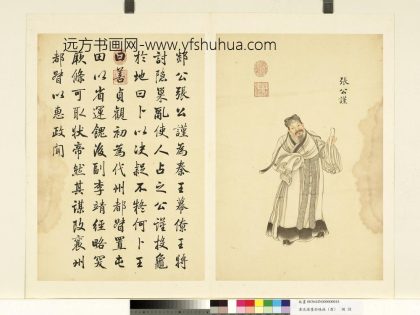 远方书画网-www.yfshuhua.com
張公謹
郯公張公謹為秦王幕僚王將
討隱巢亂使人占之公謹投龜
於地曰卜以決疑不疑何卜王
曰善貞觀初為代州都督置屯
田以省運餽後副李靖經略突
厥條可取狀帝然其謀改襄州
都督以惠政聞